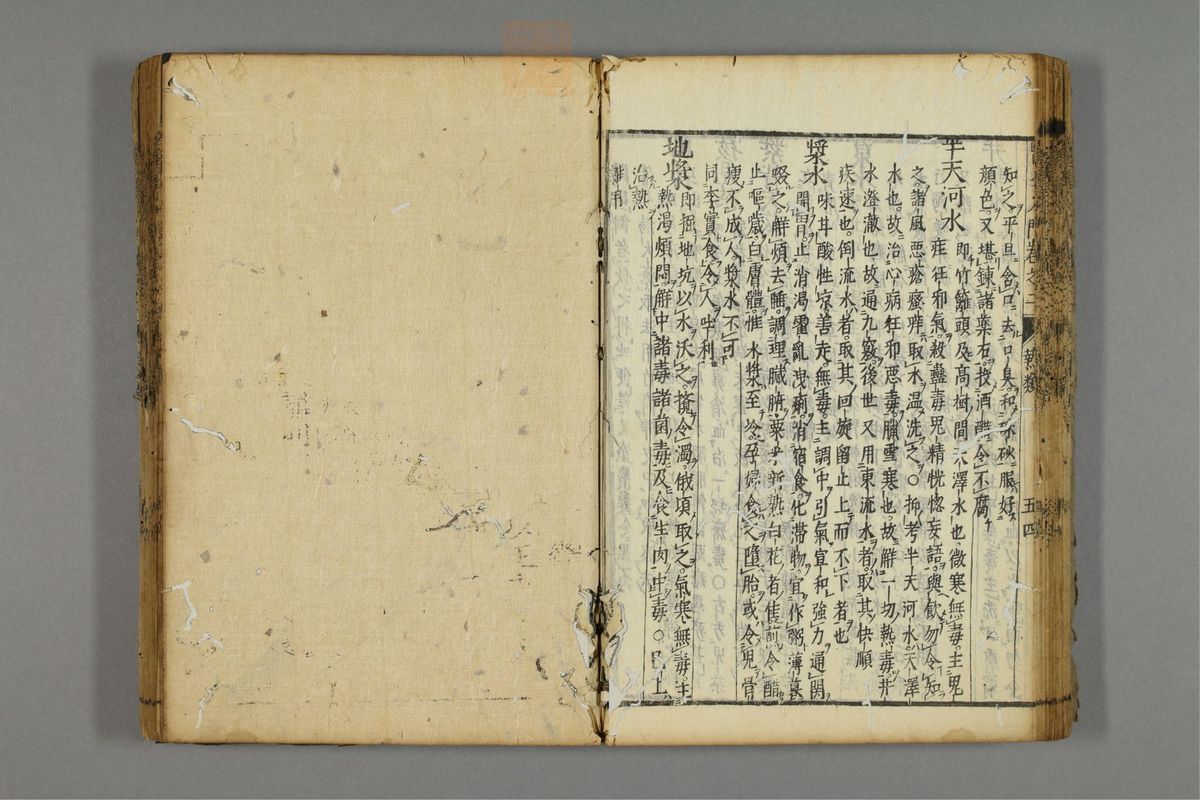 知之平旦含口去口臭和朱砂服好
顔色又堪錬諸藥石投酒醋令不腐
半天河水
即竹籬頭及高樹間天澤水也微寒無毒主鬼
疰狂邪氣殺蠱毒鬼精恍惚妄語與飲勿令知
之諸風惡瘡瘙痒取水温洗之○抑考半天河水天澤
水也故治心病狂邪惡毒臘雪寒水也故解一切熱毒井
水澄澈也故通九竅後世又用東流水者取其快順
疾速也倒流水者取其回旋留止上而不下者也
漿水
味甘酸性凉善走無毒主調中引氣宣和強力通関
開胃止消渇霍亂洩痢消宿食化滯物宜作粥薄暮
啜之解煩去睡調理臟腑粟米新熟白花者佳煎令醋
止嘔歳白膚體惟水漿至冷孕婦食之墮胎或令兒骨
痩不成人漿水不可
同李實食令人吐利
地漿
即掘地坑以水沃之攪令濁俄頃取之氣寒無毒主
熱渇煩悶解中諸毒諸菌毒及食生肉中毒○已上
治熱
雜用
巻之二
五四